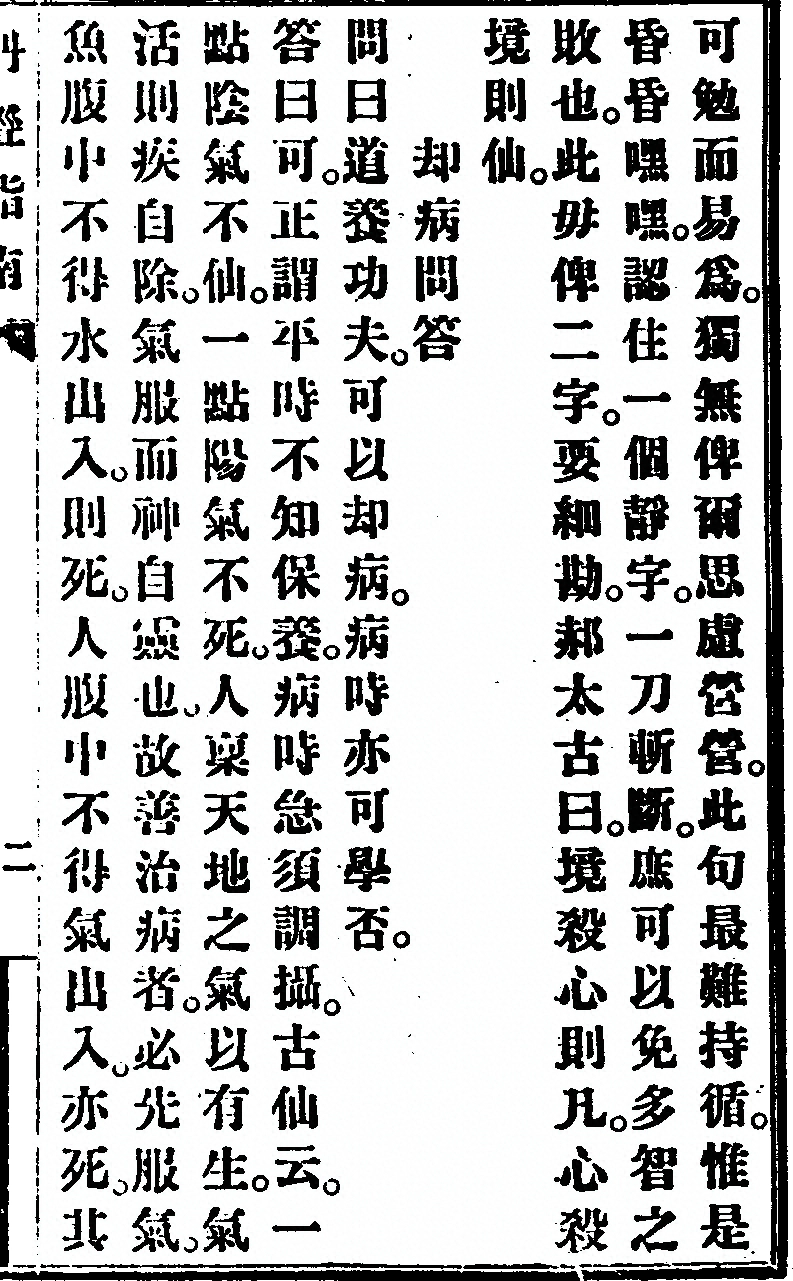 可勉而易爲。獨無俾爾思慮營營。此句最難持循。惟是
昏昏嘿嘿。認住一個靜字。一刀斬斷。庶可以免多智之
敗也。此毋俾二字。要細勘。郝太古曰。境殺心則凡。心殺
境則仙。
却病問答
問曰。道養功夫。可以却病。病時亦可學否。
答曰可。正謂平時不知保養。病時急須調攝。古仙云。一
點陰氣不仙。一點陽氣不死。人稟天地之氣以有生。氣
活則疾自除。氣服而神自靈也。故善治病者。必先服氣。
魚腹中不得水出入。則死。人腹中不得氣出入。亦死。其
二